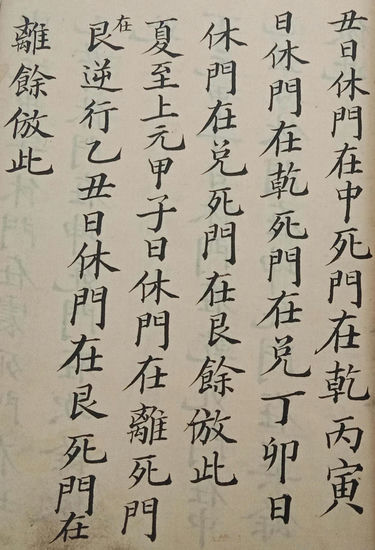 丑日休門在中死門在乾丙寅
日休門在乾死門在兑丁卯日
休門在兑死門在艮餘倣此
夏至上元甲子日休門在離死門
在艮逆行乙丑日休門在艮死門在
離餘倣此